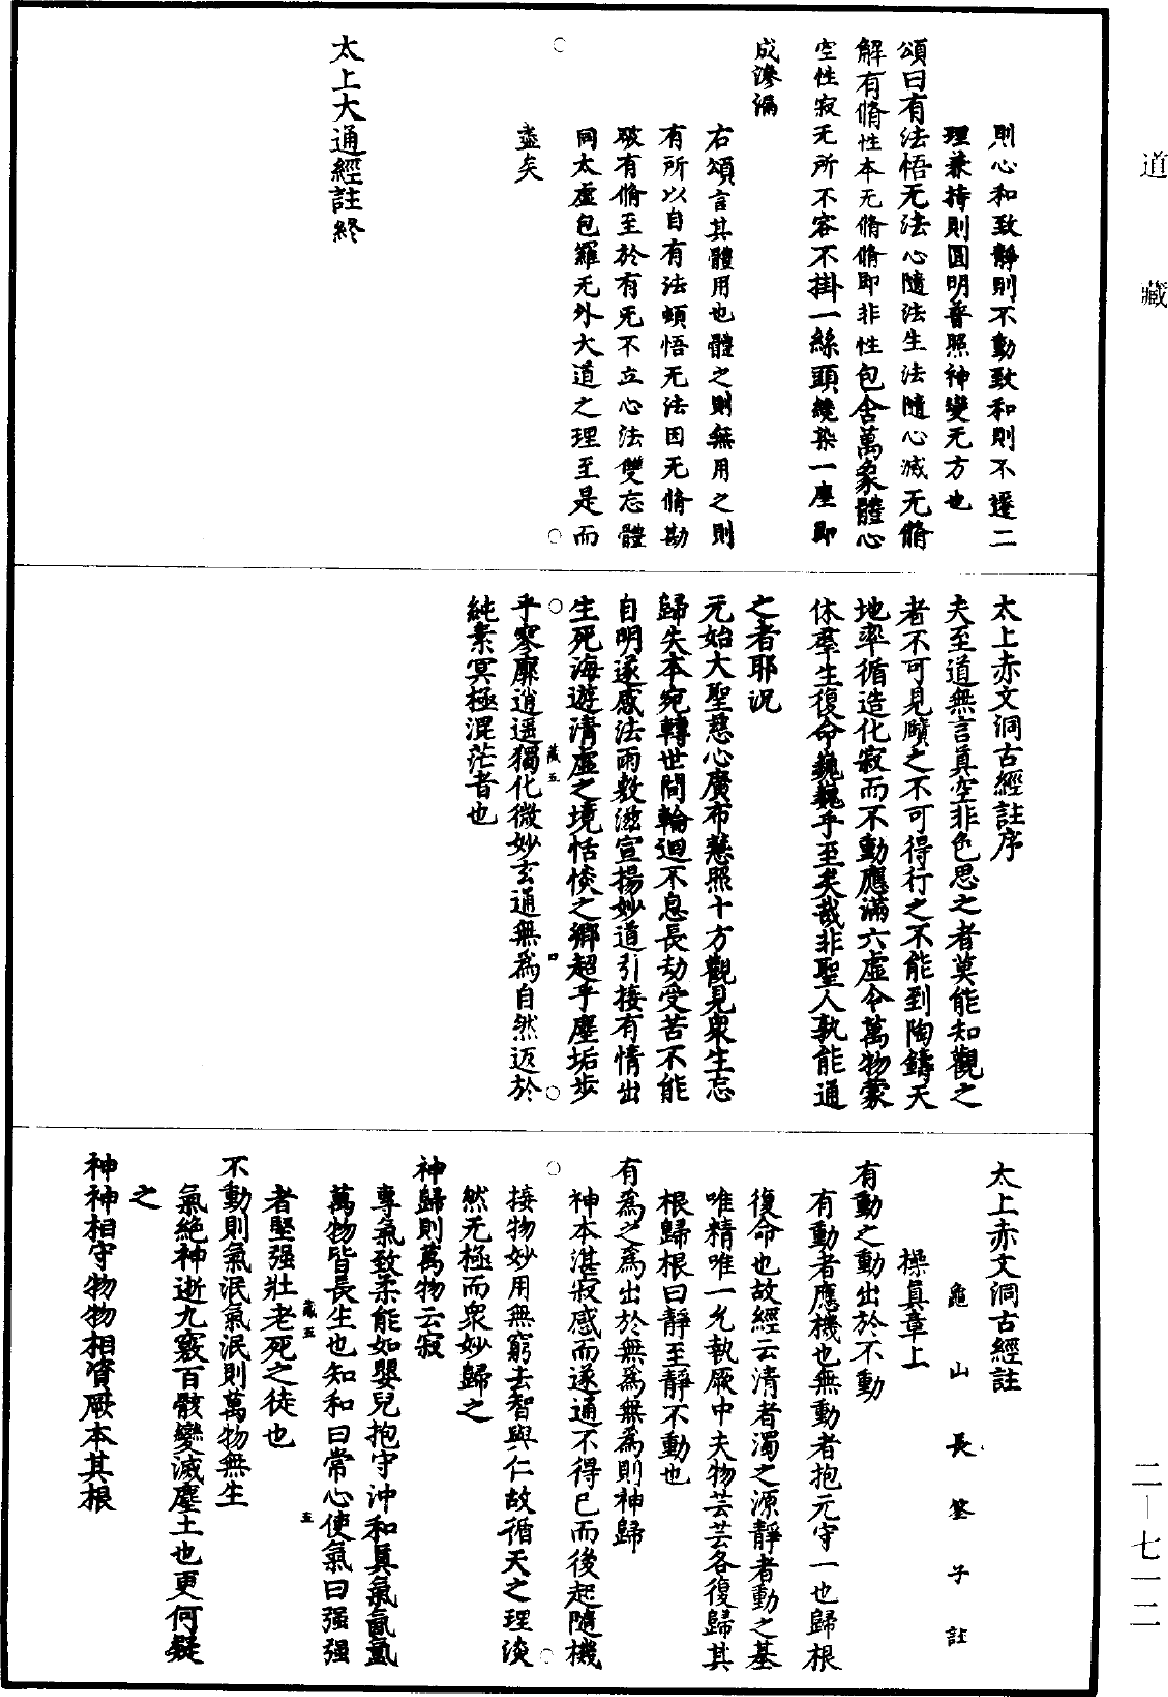 道藏
則心和致靜則不動致和則不遷二
理兼持則圓明普照神變无方也
頌曰有法悟无法心隨法生法隨心滅无脩
解有脩性本无脩脩即非性包含萬象體心
空性寂无所不容不掛一絲頭纔染一塵即
成滲漏
右頌言其體用也體之則無用之則
有所以自有法頓悟无法因无脩勘
破有脩至於有无不立心法雙忘體
同太虛包羅无外大道之理至是而
盡矣
太上大通經註終
太上赤文洞古經註序
夫至道無言真空非色思之者莫能知觀之
者不可見賾之不可得行之不能到陶鑄天
地率循造化寂而不動應滿六虛令萬物蒙
休羣生復命巍巍乎至矣哉非聖人孰能通
之者耶況
元始大聖慈心廣布慧照十方觀見衆生忘
歸失本宛轉世間輪迴不息長劫受苦不能
自明遂感法雨敷滋宣揚妙道引接有情出
生死海遊清虛之境恬惔之鄉超乎塵垢步
藏五 四
乎寥廓逍遥獨化微妙玄通無爲自然返於
純素冥極混茫者也
太上赤文洞古經註
龜山長筌子註
操真章上
有動之動出於不動
有動者應機也無動者抱元守一也歸根
復命也故經云清者濁之源靜者動之基
唯精唯一允執厥中夫物芸芸各復歸其
根歸根曰靜至靜不動也
有爲之爲出於無爲無爲則神歸
神本湛寂感而遂通不得已而後起隨機
接物妙用無窮去智與仁故循天之理淡
然无極而衆妙歸之
神歸則萬物云寂
專氣致柔能如嬰兒抱守沖和真氣氤氳
萬物皆長生也知和曰常心使氣曰强强
藏五 五
者堅强壯老死之徒也
不動則氣泯氣泯則萬物無生
氣絶神逝九竅百骸變滅塵土也更何疑
之
神神相守物物相資厥本其根
二—七一二